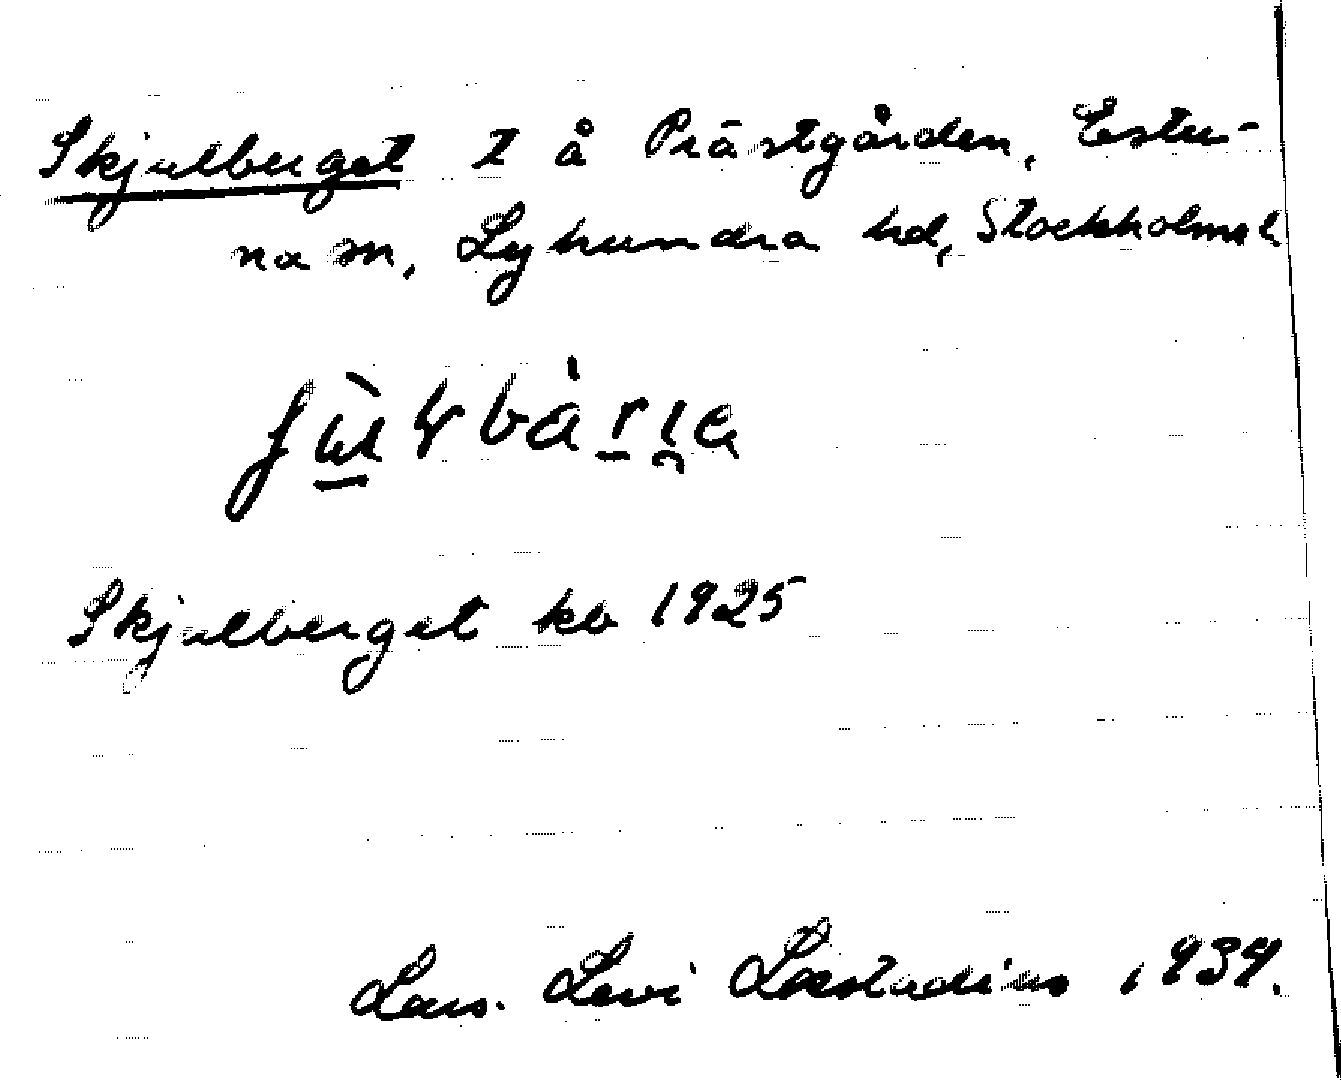 Skjulberget t å Prästgården, Estu-
na sn, Lyhundra hd, Stockholms l
Skjulberget kb 1925
Lars Levi Læstadius 1934.